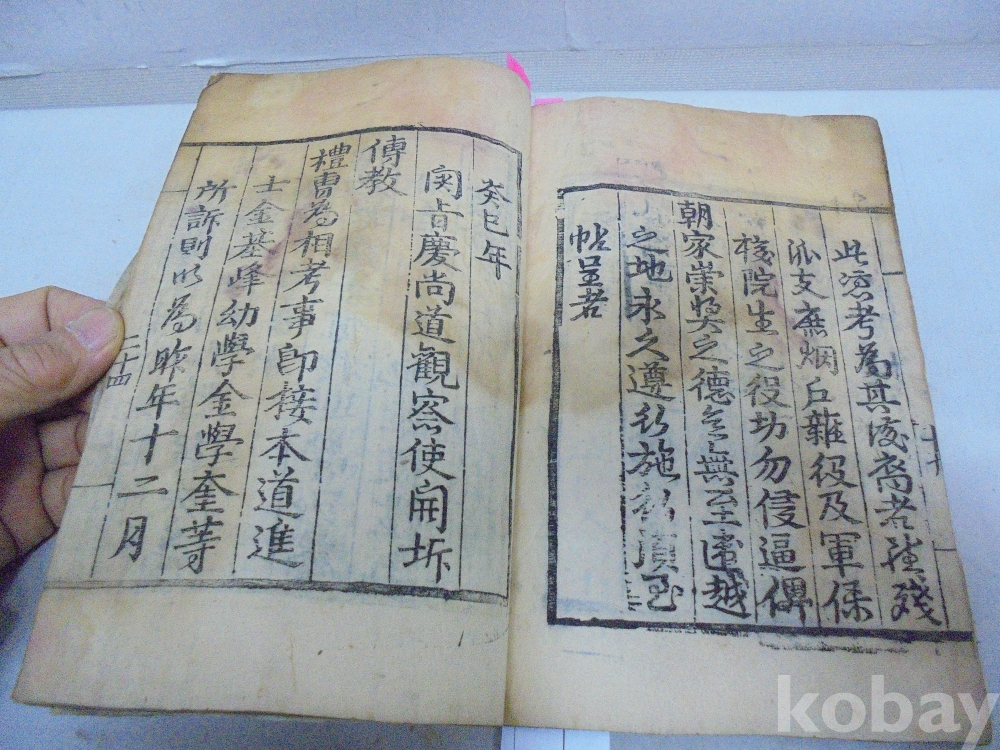 此憑考為其後裔者雖殘
派支庶烟戶雜役及軍保
校院生之役切勿侵逼俾
朝家崇奬之德意無至違越
之地永久遵行施行須至
帖呈者
癸巳年
関旨慶尚道觀察使開坼
傳教
禮曹為相考事即接本道進
士金基峰幼學金學奎等
所訴則以為昨年十二月
二十四
kobay